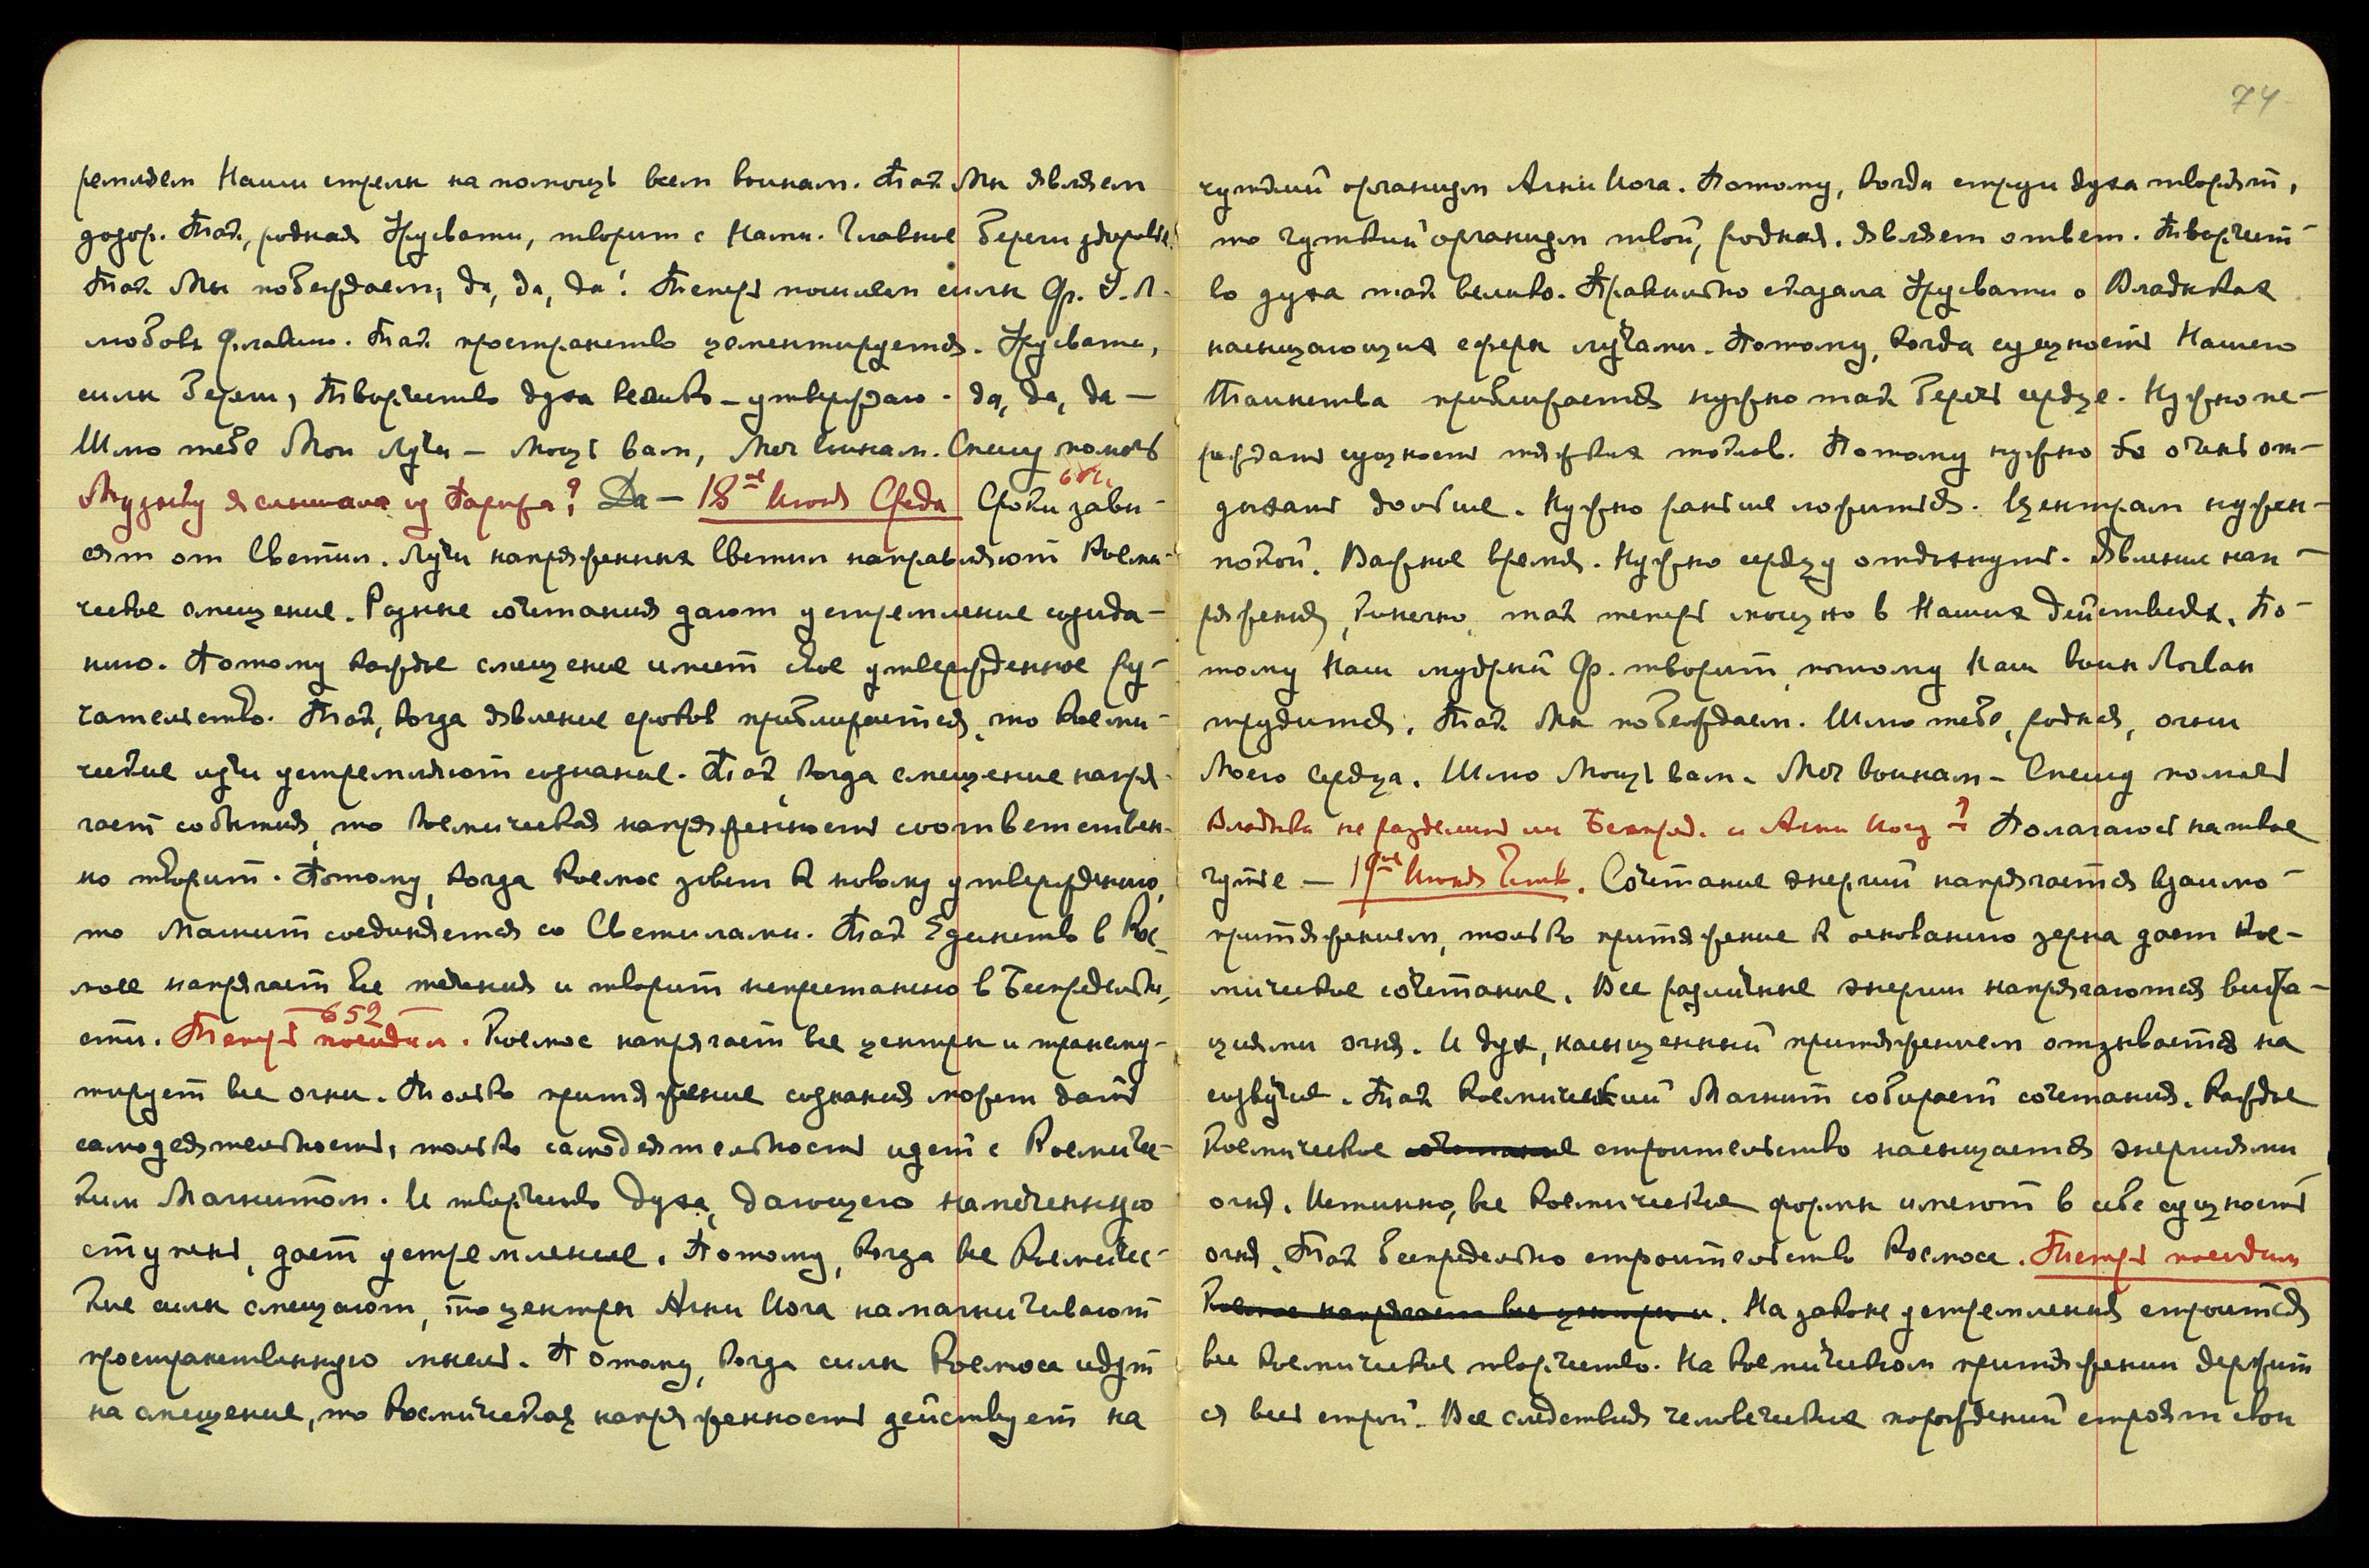 ремляем Наши стрелы на помощь всем воинам. Так Мы являем
дозор. Так, родная Урусвати, творит с Нами. Главное береги здоровье.
Так Мы побеждаем, да, да, да! Теперь пошлем силы Ф. У. Л.
любовь Флавию. Так пространство цементируется. Урусвати,
силы береги, творчество духа велико – утверждаю. да, да, да –
Шлю тебе Мои Лучи – Мощь вам, Меч воинам. Спешу помочь
Музыку я слышала из Парижа? Да – 18ое Июня Среда Сроки зави-
651.
сят от Светил. Лучи напряженных Светил направляют косми-
ческое смещение. Разные сочетания дают устремление созида-
нию. Потому каждое смещение имеет свое утвержденное ру-
чательство. Так, когда явление сроков приближается, то косми-
ческие лучи устремляют сознание. Так когда смещение напря-
гает события, то космическая напряженность соответствен-
но творит. Потому, когда космос зовет к новому утверждению,
то Магнит соединяется со Светилами. Так Единство в Кос-
мосе напрягает все течения и творит непрестанно в Беспредельно-
652
сти. Теперь последим. Космос напрягает все центры и трансму-
тирует все огни. Только притяжение сознания может дать
самодеятельность, только самодеятельность идет с Космичес-
ким Магнитом. И творчество духа, дающего намеченную
ступень, дает устремление. Потому, когда все Космичес-
кие силы смещают, то центры Агни Йога намагничивают
пространственную мысль. Потому, когда силы Космоса идут
на смещение, то Космическая напряженность действует на
74
чуткий организм Агни Йога. Потому, когда струи духа творят,
то чуткий организм твой, родная, являет ответ. Творчест-
во духа так велико. Правильно сказала Урусвати о Владыках
насыщающих сферы лучами. Потому, когда сущность Нашего
Таинства приближается нужно так беречь сердце. Нужно пе-
реждать сущность тяжких токов. Потому нужно бы очень от-
дыхать дольше. Нужно раньше ложиться. Центрам нужен –
покой. Важное время. Нужно сердцу отдохнуть. Явление нап-
ряжения, конечно, так теперь мощно в Наших действиях. По-
тому Наш мудрый Ф. творит, потому Наш воин Логван
трудится. Так Мы побеждаем. Шлю тебе, родная, огни
Моего Сердца. Шлю Мощь вам. Меч воинам – Спешу помочь
Владыка не разделить ли Беспред. и Агни Йогу? Полагаюсь на твое
чутье – 19ое Июня Четв. Сочетание энергий напрягается взаимо-
притяжением, только притяжение к основанию зерна дает кос-
мическое сочетание. Все различные энергии напрягаются вибра-
циями огня. И дух, насыщенный притяжением отзывается на
созвучие. Так Космический Магнит собирает сочетания. Каждое
космическое сочетание строительство насыщается энергиями
огня. Истинно, все космические формы имеют в себе сущность
огня. Так беспредельно строительство Космоса. Теперь последим
Космос напрягает все центры и. На законе устремления строится
все космическое творчество. На космическом притяжении держит
ся весь строй. Все следствия человеческих порождений строят свои